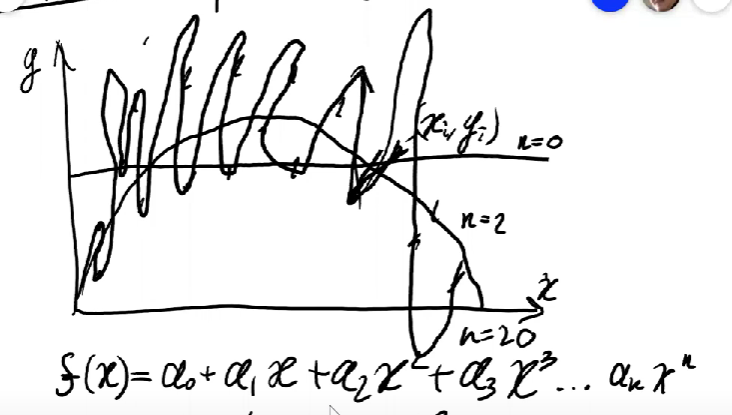 y
(xᵢ, yᵢ)
n=0
n=2
x
n=20
f(x)= a₀+ a₁ x +a₂x²+a₃ x³... aₙ xⁿ